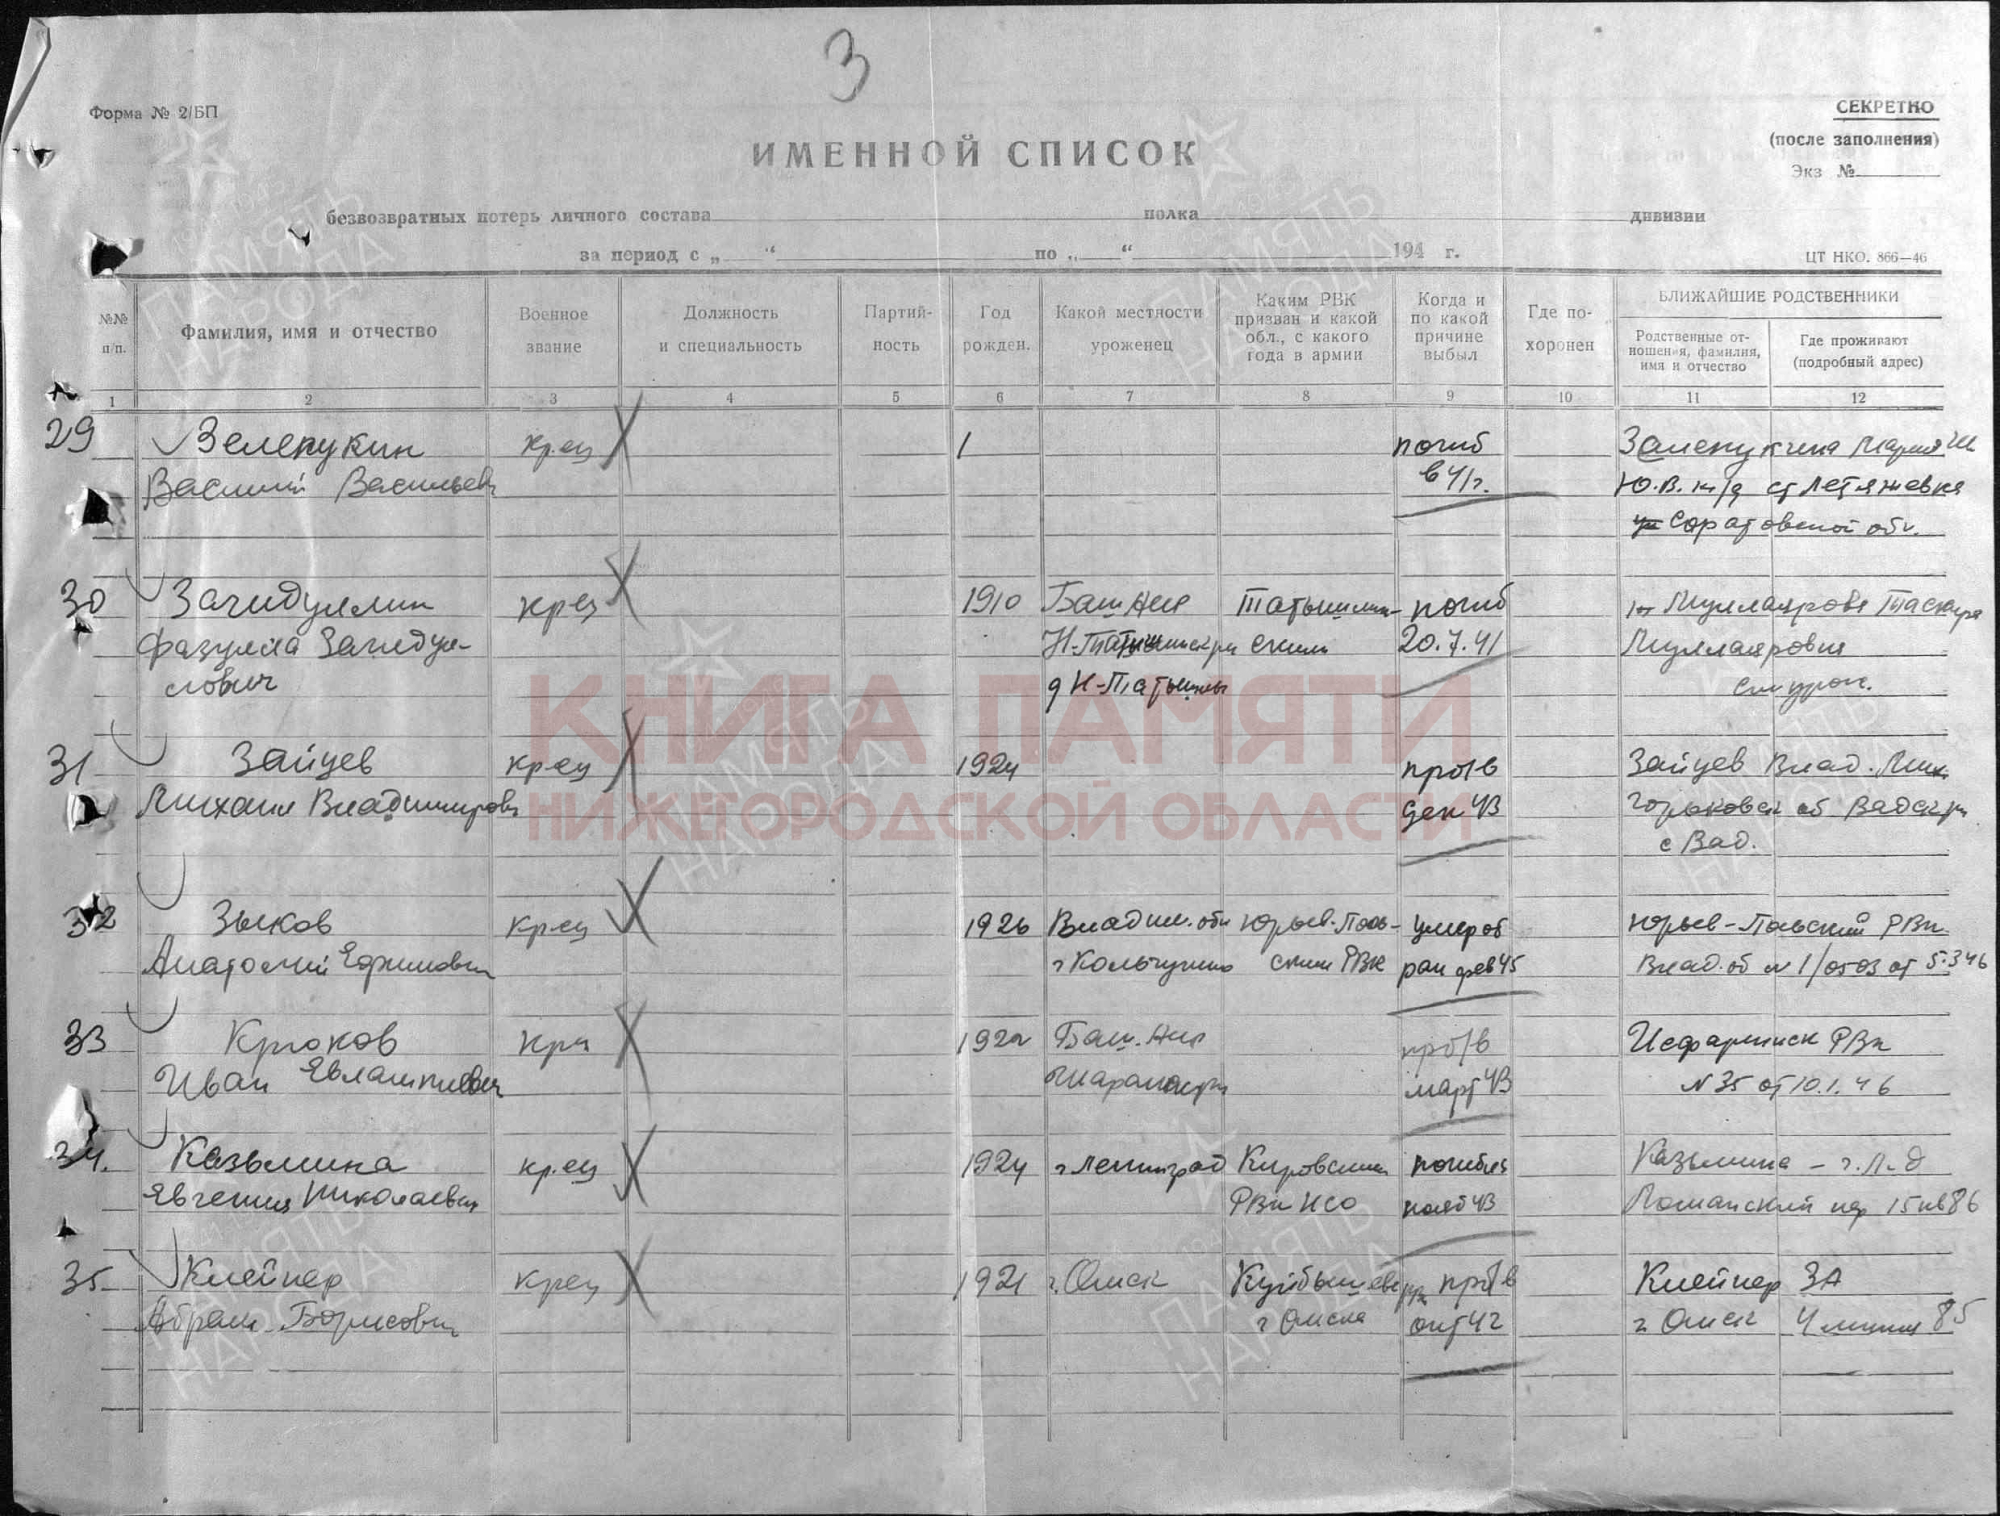 3
Форма № 2/БП
СЕКРЕТНО
(после заполнения)
Экз №
ИМЕННОЙ СПИСОК
безвозвратных потерь личного состава полка дивизии
за период с „ “ по „ “ 194 г.
ЦТ НКО. 866—46
№№ п/п.
Фамилия, имя и отчество
Военное звание
Должность и специальность
Партий-ность
Год рожден.
Какой местности уроженец
Каким РВК призван и какой обл., с какого года в армии
Когда и по какой причине выбыл
Где по-хоронен
БЛИЖАЙШИЕ РОДСТВЕННИКИ
Родственные от-ношения, фамилия, имя и отчество
Где проживают (подробный адрес)
1 2 3 4 5 6 7 8 9 10 11 12
29 Зелепукин кр.ец погиб Залепукина Мария
Василий Васильев в 41 г. Ю.В. ж/д ст Летяжевка
Саратовской обл.
30 Загидуллин кр.ец 1910 Баш Аср Татышлин- погиб Муллаярова
Фазулла Загидул- ским 20.7.41 Муллаяровна
лович д Н-Татышлы
31 Зайцев кр-ец 1924 про/в Зайцев Влад. Мих.
Михаил Владимирович дек 43 Горьковск об Вадск рн
с Вад.
32 Зыков кр-ец 1926 Владим. обл Юрьев-Поль- умер от Юрьев-Польский РВк
Анатолий Ефимович г Кольчугино ским РВК ран фев 45 Влад. об № 1/0503 от 5.3 46
33 Крюков 1922 Баш. Аср про/в Исфаринск РВк
Иван Евлампиевич март 43 № 35 от 10.1.46
34. Казьмина кр.ец 1924 г Ленинград Кировским погибла Казьмина – г. Л-д
Евгения Николаевна РВк ЛСО нояб 43 Ломанский пер 15 кв 86
35 Клейнер кр.ец 1921 г. Омск Куйбышевс про/в Клейнер ЗА
Абрам Борисович г Омска окт 42 г Омск 4 линия 85
КНИГА ПАМЯТИ
НИЖЕГОРОДСКОЙ ОБЛАСТИ
ПАМЯТЬ НАРОДА